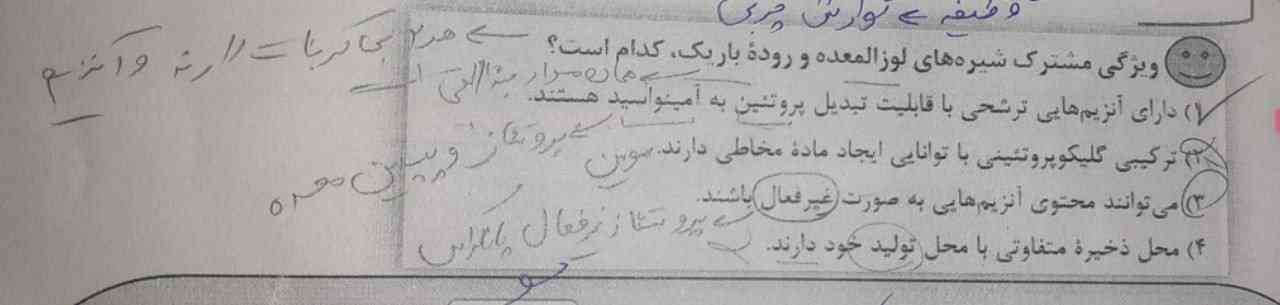 وظیفه ← گوارش چربی
ویژگی مشترک شیره‌های لوزالمعده و رودهٔ باریک، کدام است؟
← هر دو بی‌کربنات دارند و آنزیم
۱) دارای آنزیم‌هایی ترشحی با قابلیت تبدیل پروتئین به آمینواسید هستند.
۲) ترکیبی گلیکوپروتئینی با توانایی ایجاد مادهٔ مخاطی دارند.
موسین
← پروتئاز و پپسین معده
۳) می‌توانند محتوی آنزیم‌هایی به صورت غیرفعال باشند.
← پروتئاز غیرفعال پانکراس
۴) محل ذخیرهٔ متفاوتی با محل تولید خود دارند.